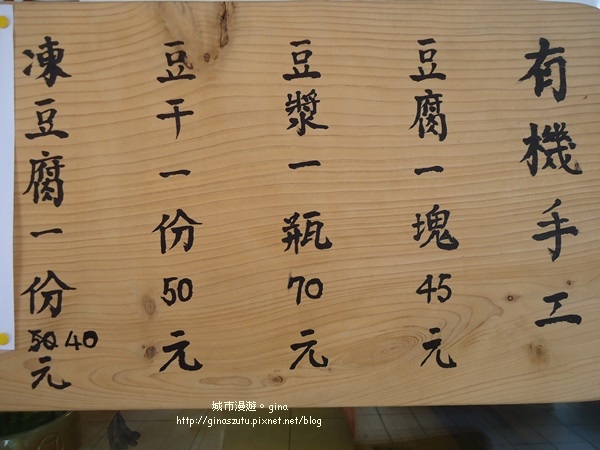 有機手工
豆腐一塊45元
豆漿一瓶70元
豆干一份50元
凍豆腐一份50 40元
城市漫遊。gina
http://ginaszutu.pixnet.net/blog